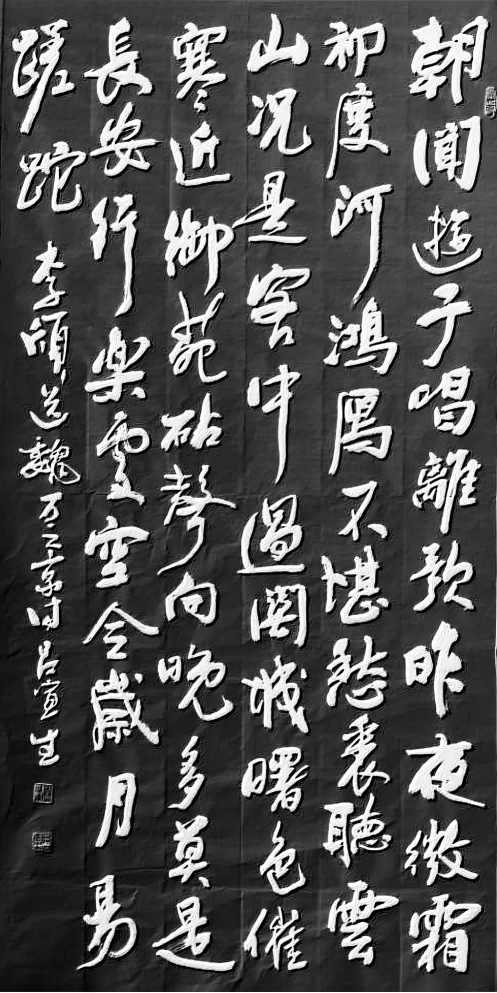 朝聞遊子唱離歌昨夜微霜
初度河鴻鴈不堪愁裏聽雲
山況是客中過關城曙色催
寒近御苑砧聲向晚多莫是
長安行樂處空令歲月易
蹉跎
李頎送魏万之京 吕宣生